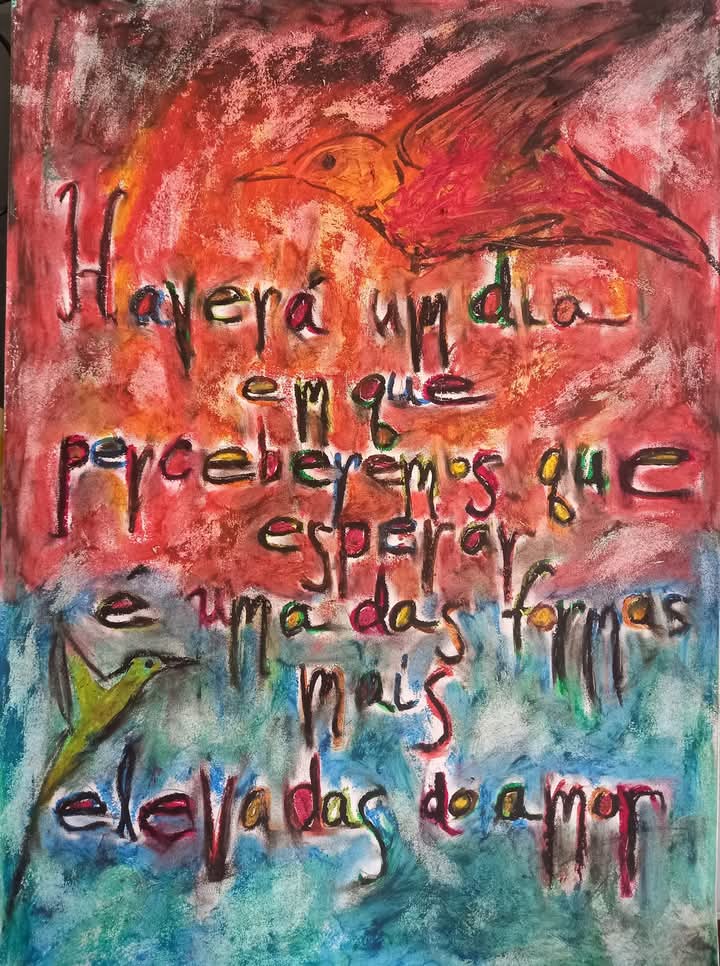 Haverá um dia
em que
perceberemos que
esperar
é uma das formas
mais
elevadas do amor